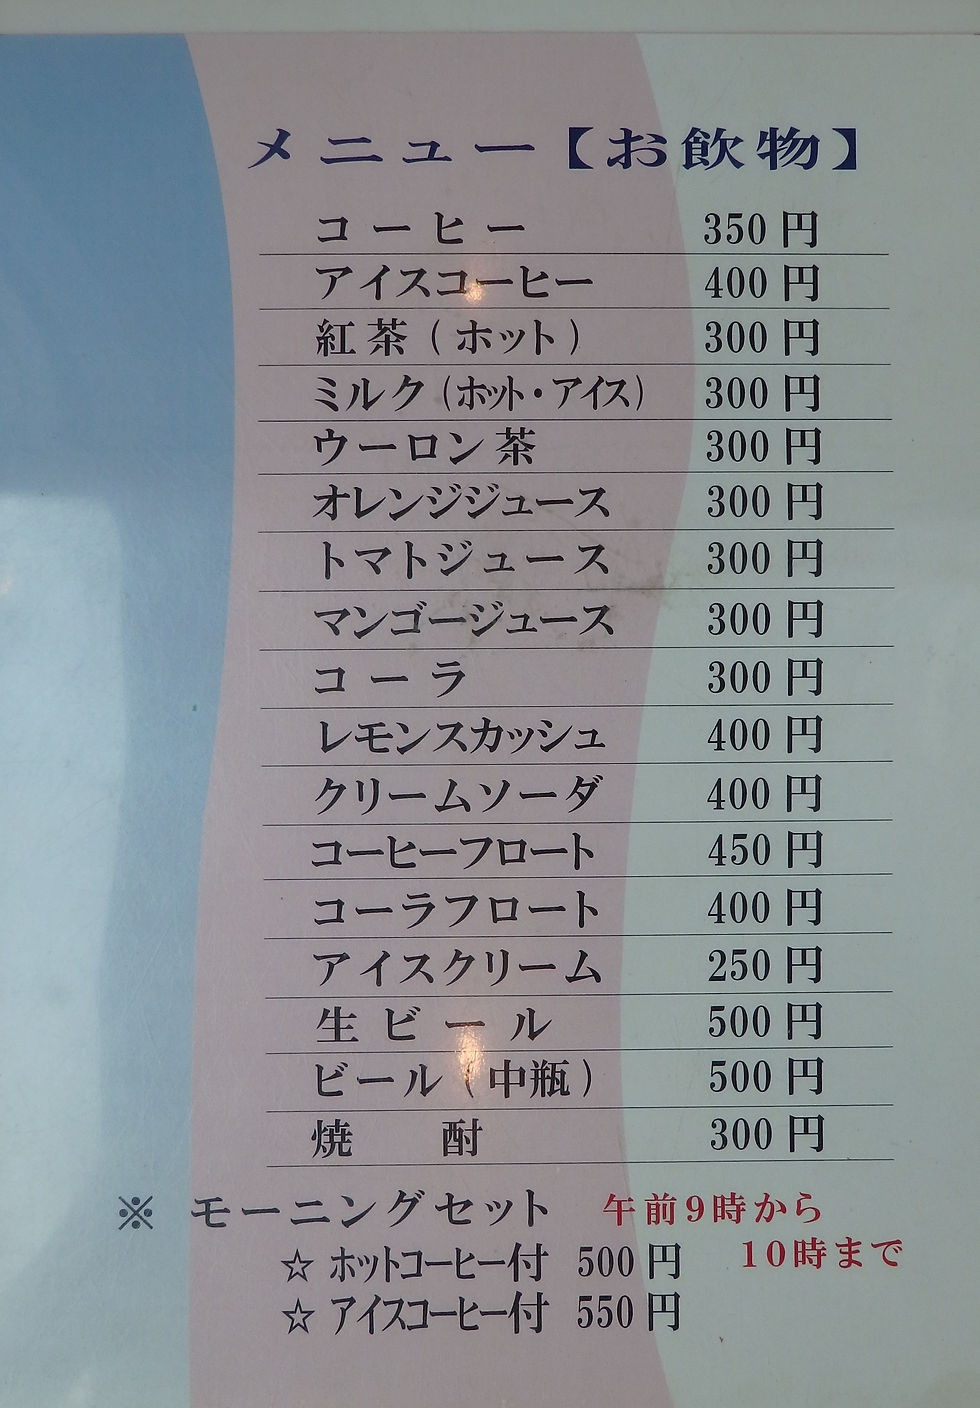 メニュー【お飲物】
コーヒー 350円
アイスコーヒー 400円
紅茶(ホット) 300円
ミルク(ホット・アイス) 300円
ウーロン茶 300円
オレンジジュース 300円
トマトジュース 300円
マンゴージュース 300円
コーラ 300円
レモンスカッシュ 400円
クリームソーダ 400円
コーヒーフロート 450円
コーラフロート 400円
アイスクリーム 250円
生ビール 500円
ビール(中瓶) 500円
焼酎 300円
※ モーニングセット 午前9時から
10時まで
☆ ホットコーヒー付 500円
☆ アイスコーヒー付 550円